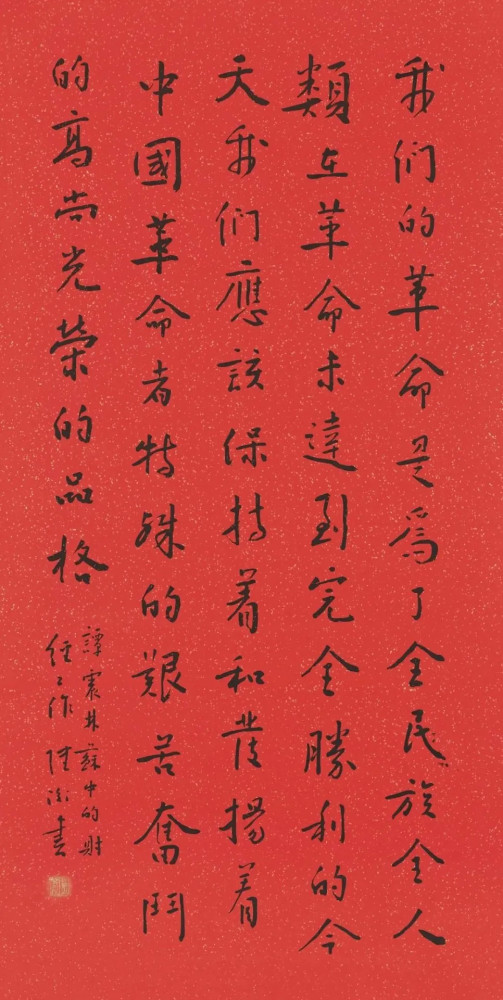 我们的革命是爲了全民族全人
類在革命未達到完全勝利的今
天我们應該保持着和發揚着
中國革命者特殊的艱苦奮鬥
的高尚光榮的品格
譚震林蘇中的財
經工作 陸衡書